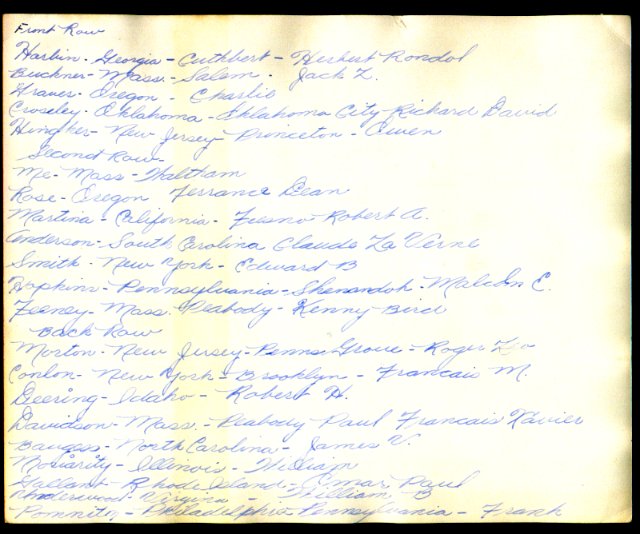 Front Row
Harbin - Georgia - Cuthbert - Herbert Rondol
Buckner - Mass. - Salem - Jack Z.
Graves - Oregon - Charlie
Croseley - Oklahoma - Oklahoma City - Richard David
- New Jersey - Princeton - Owen
Second Row -
Me - Mass - Waltham
Rose - Oregon Terrance Dean
Martina - California - Fresno - Robert A.
Anderson - South Carolina Claude La Verne
Smith - New York - Edward B
Hopkins - Pennsylvania - Shenandoh - C.
Feeney - Mass. Peabody - Kenny Bird
Back Row
Morton - New Jersey - Penns Grove - Roger
Conlon - New York - Brooklyn - Francais M.
Deering - Idaho - Robert H.
Davidson - Mass. - Peabody Paul Francais Xavier
Bauges - North Carolina - James V.
Moriarity - Illinois - William
Gallant - Rhode Island - Omar, Paul
Underwood - Virginia - William B
- Philadelphia Pennsylvania - Frank